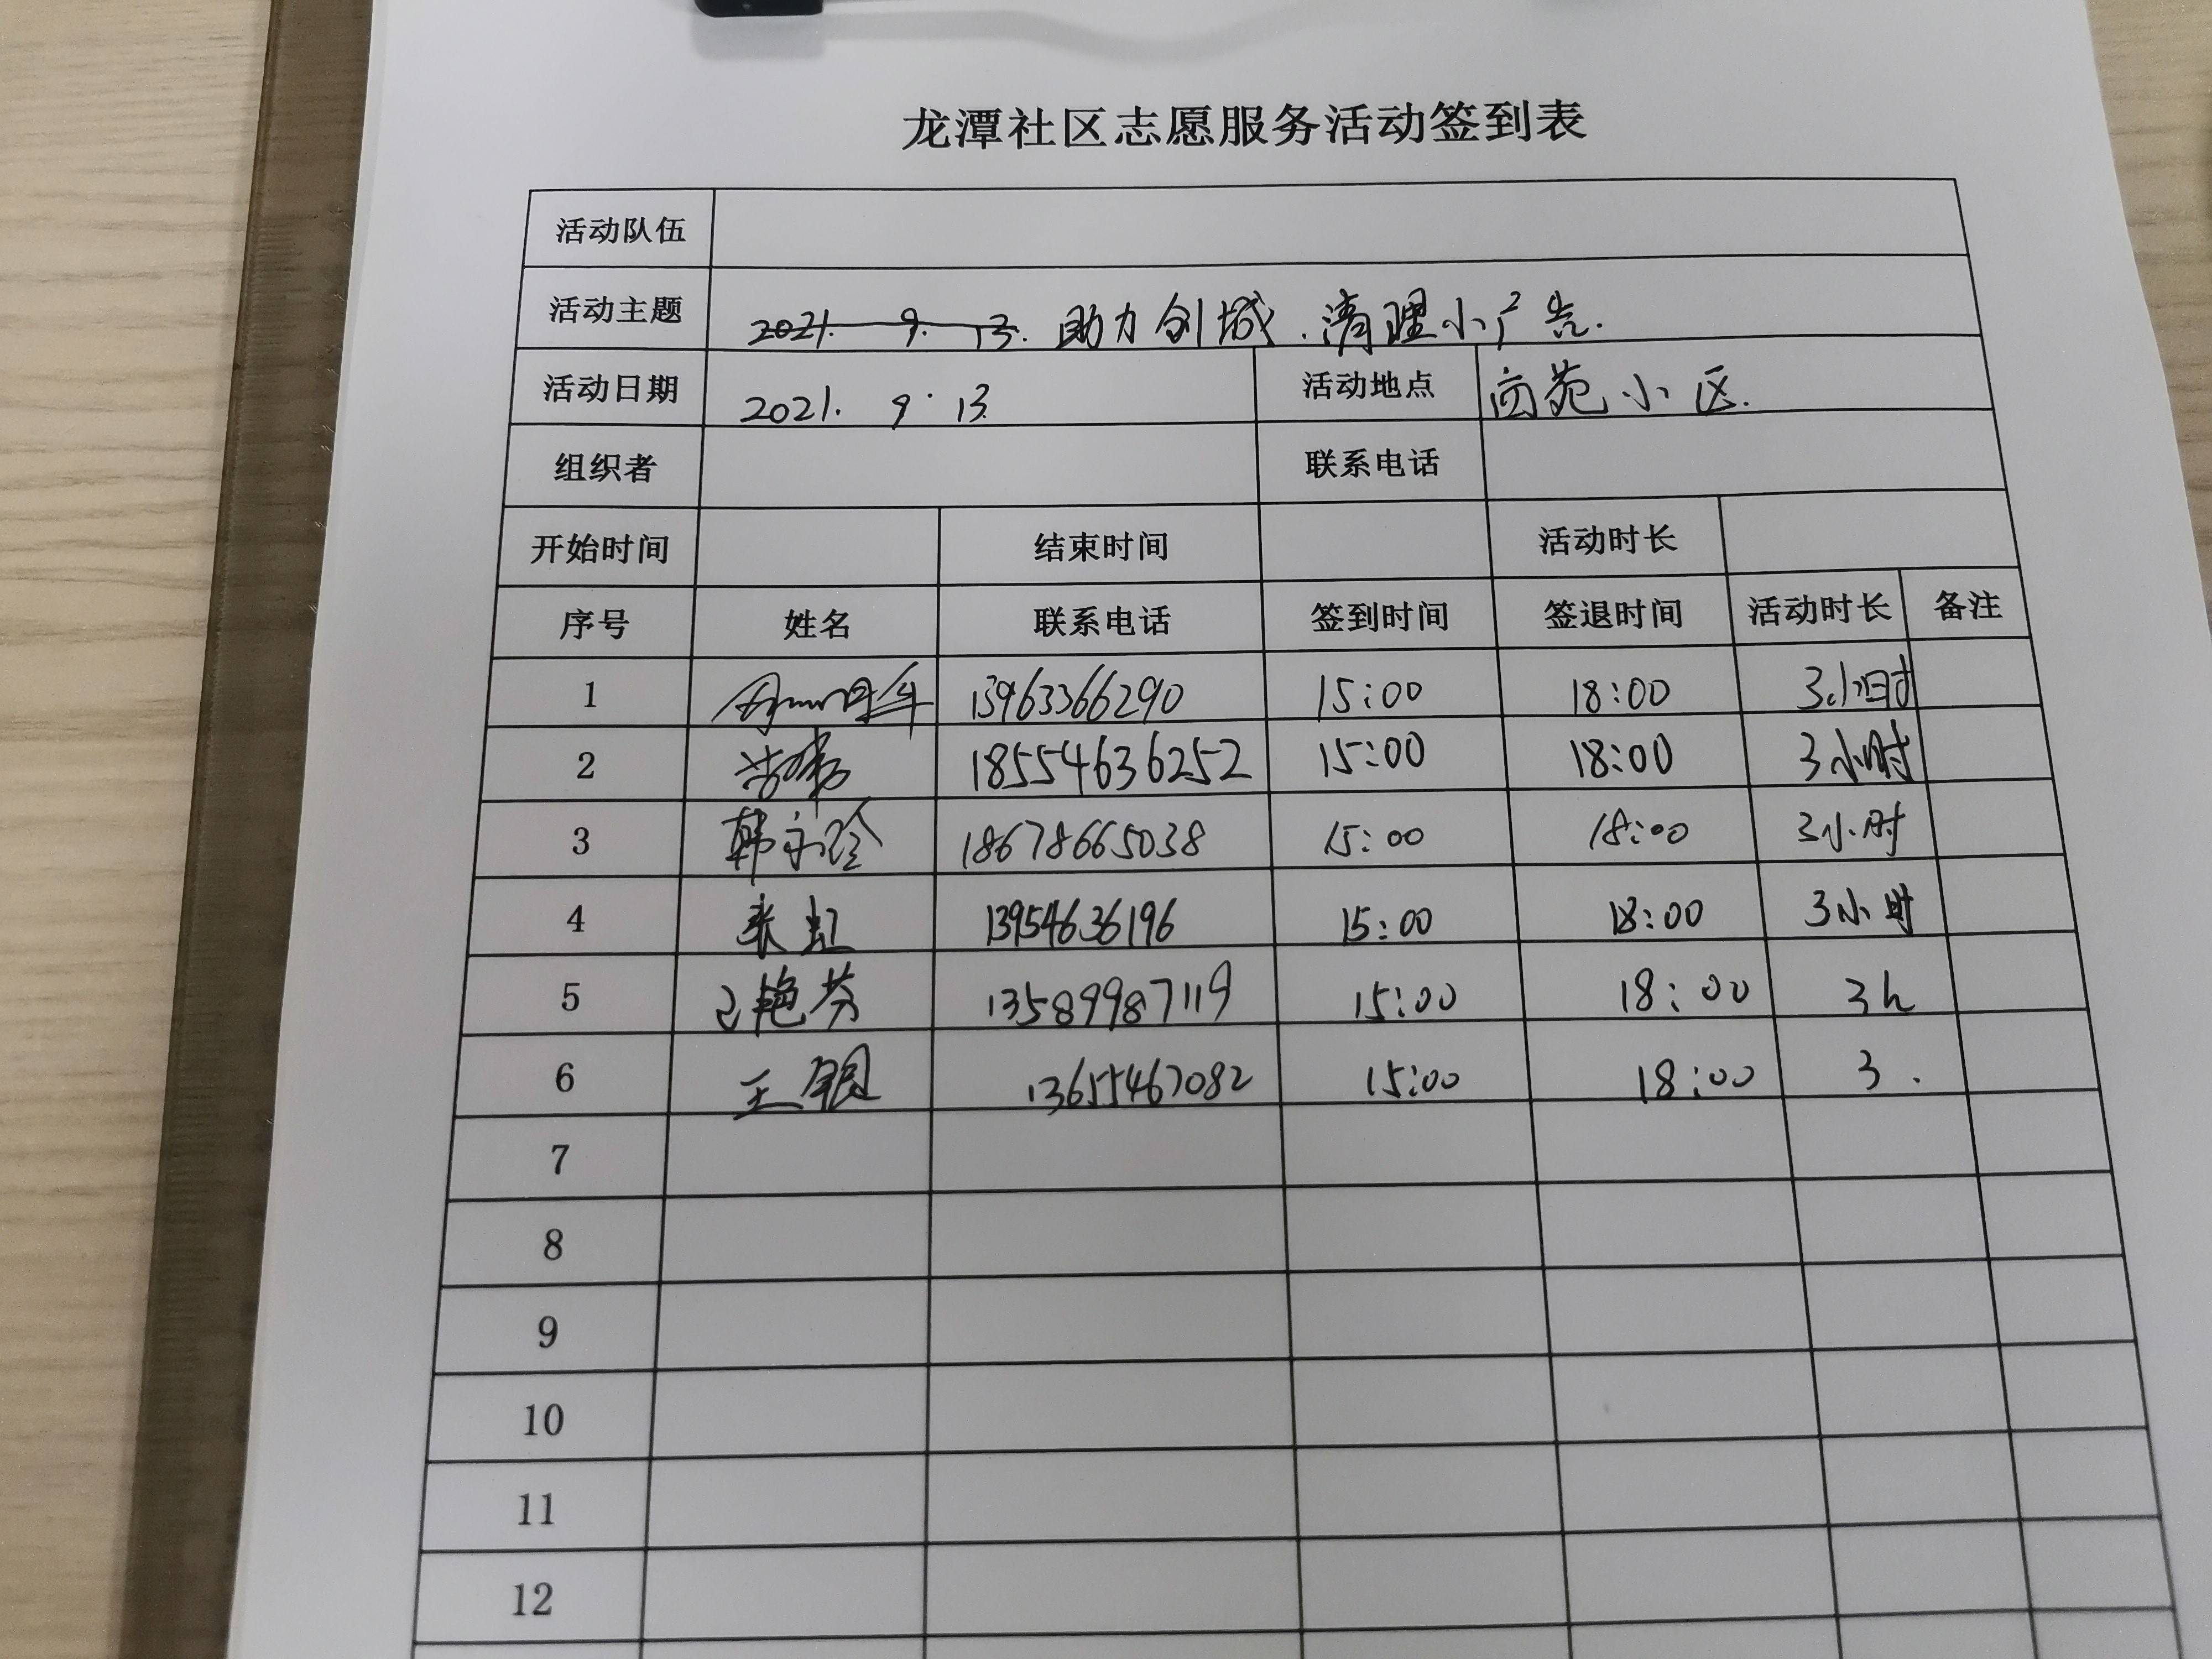 龙潭社区志愿服务活动签到表
活动队伍
活动主题 2021. 9. 13. 助力创城.清理小广告.
活动日期 2021. 9. 13. 活动地点 商苑小区.
组织者 联系电话
开始时间 结束时间 活动时长
序号 姓名 联系电话 签到时间 签退时间 活动时长 备注
1 13963366290 15:00 18:00 3小时
2 18554636252 15:00 18:00 3小时
3 韩永玲 18678665038 15:00 18:00 3小时
4 张虹 13954636196 15:00 18:00 3小时
5 艳芬 13589987119 15:00 18:00 3h
6 王银 13655467082 15:00 18:00 3.
7
8
9
10
11
12